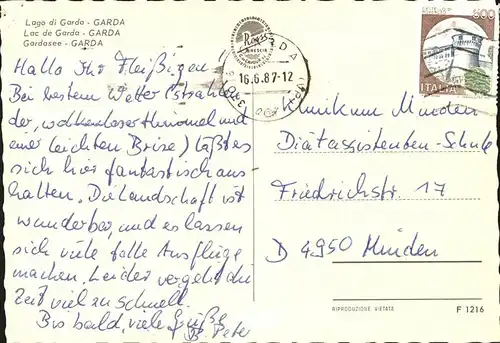 Lago di Garda - GARDA
Lac de Garda - GARDA
Gardasee - GARDA
Hallo Ihr Fleißigen
Bei bestem Wetter (strahlen-
der, wolkenloser Himmel und
einer leichten Brise) läßt es
sich hier fantastisch aus-
halten. Die Landschaft ist
wunderbar, und es lassen
sich viele tolle Ausflüge
machen. Leider vergeht die
Zeit viel zu schnell.
Bis bald, viele Grüße
Peter
16.6.87-12
600
ITALIA
Klinikum Minden
Diätassistenten-Schule
Friedrichstr. 17
D 4950 Minden
RIPRODUZIONE VIETATA
F 1216